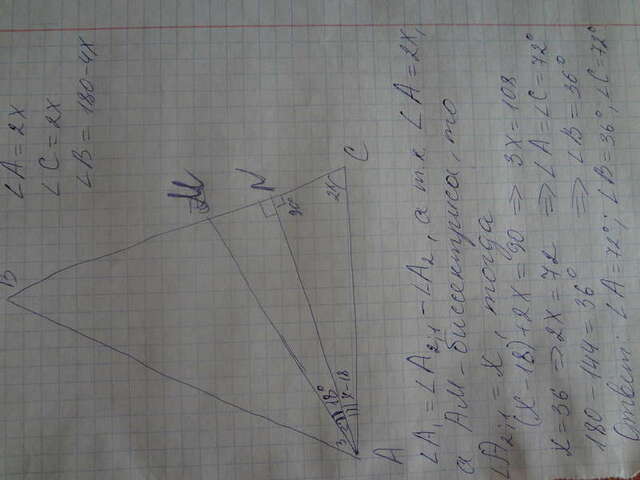 ∠A = 2x
∠C = 2x
∠B = 180-4x
B
M
N
90°
C
2x
18°
x-18
3
2
1
A
∠A₁ = ∠A₂₊₁ - ∠A₂, а т.к. ∠A = 2x,
а AM - биссектриса, то
∠A₂₊₁ = x, тогда
(x-18)+2x = 90 ⇒ 3x = 108
x = 36 ⇒ 2x = 72 ⇒ ∠A = ∠C = 72°
180 - 144 = 36° ⇒ ∠B = 36°
Ответ: ∠A = 72°; ∠B = 36°, ∠C = 72°